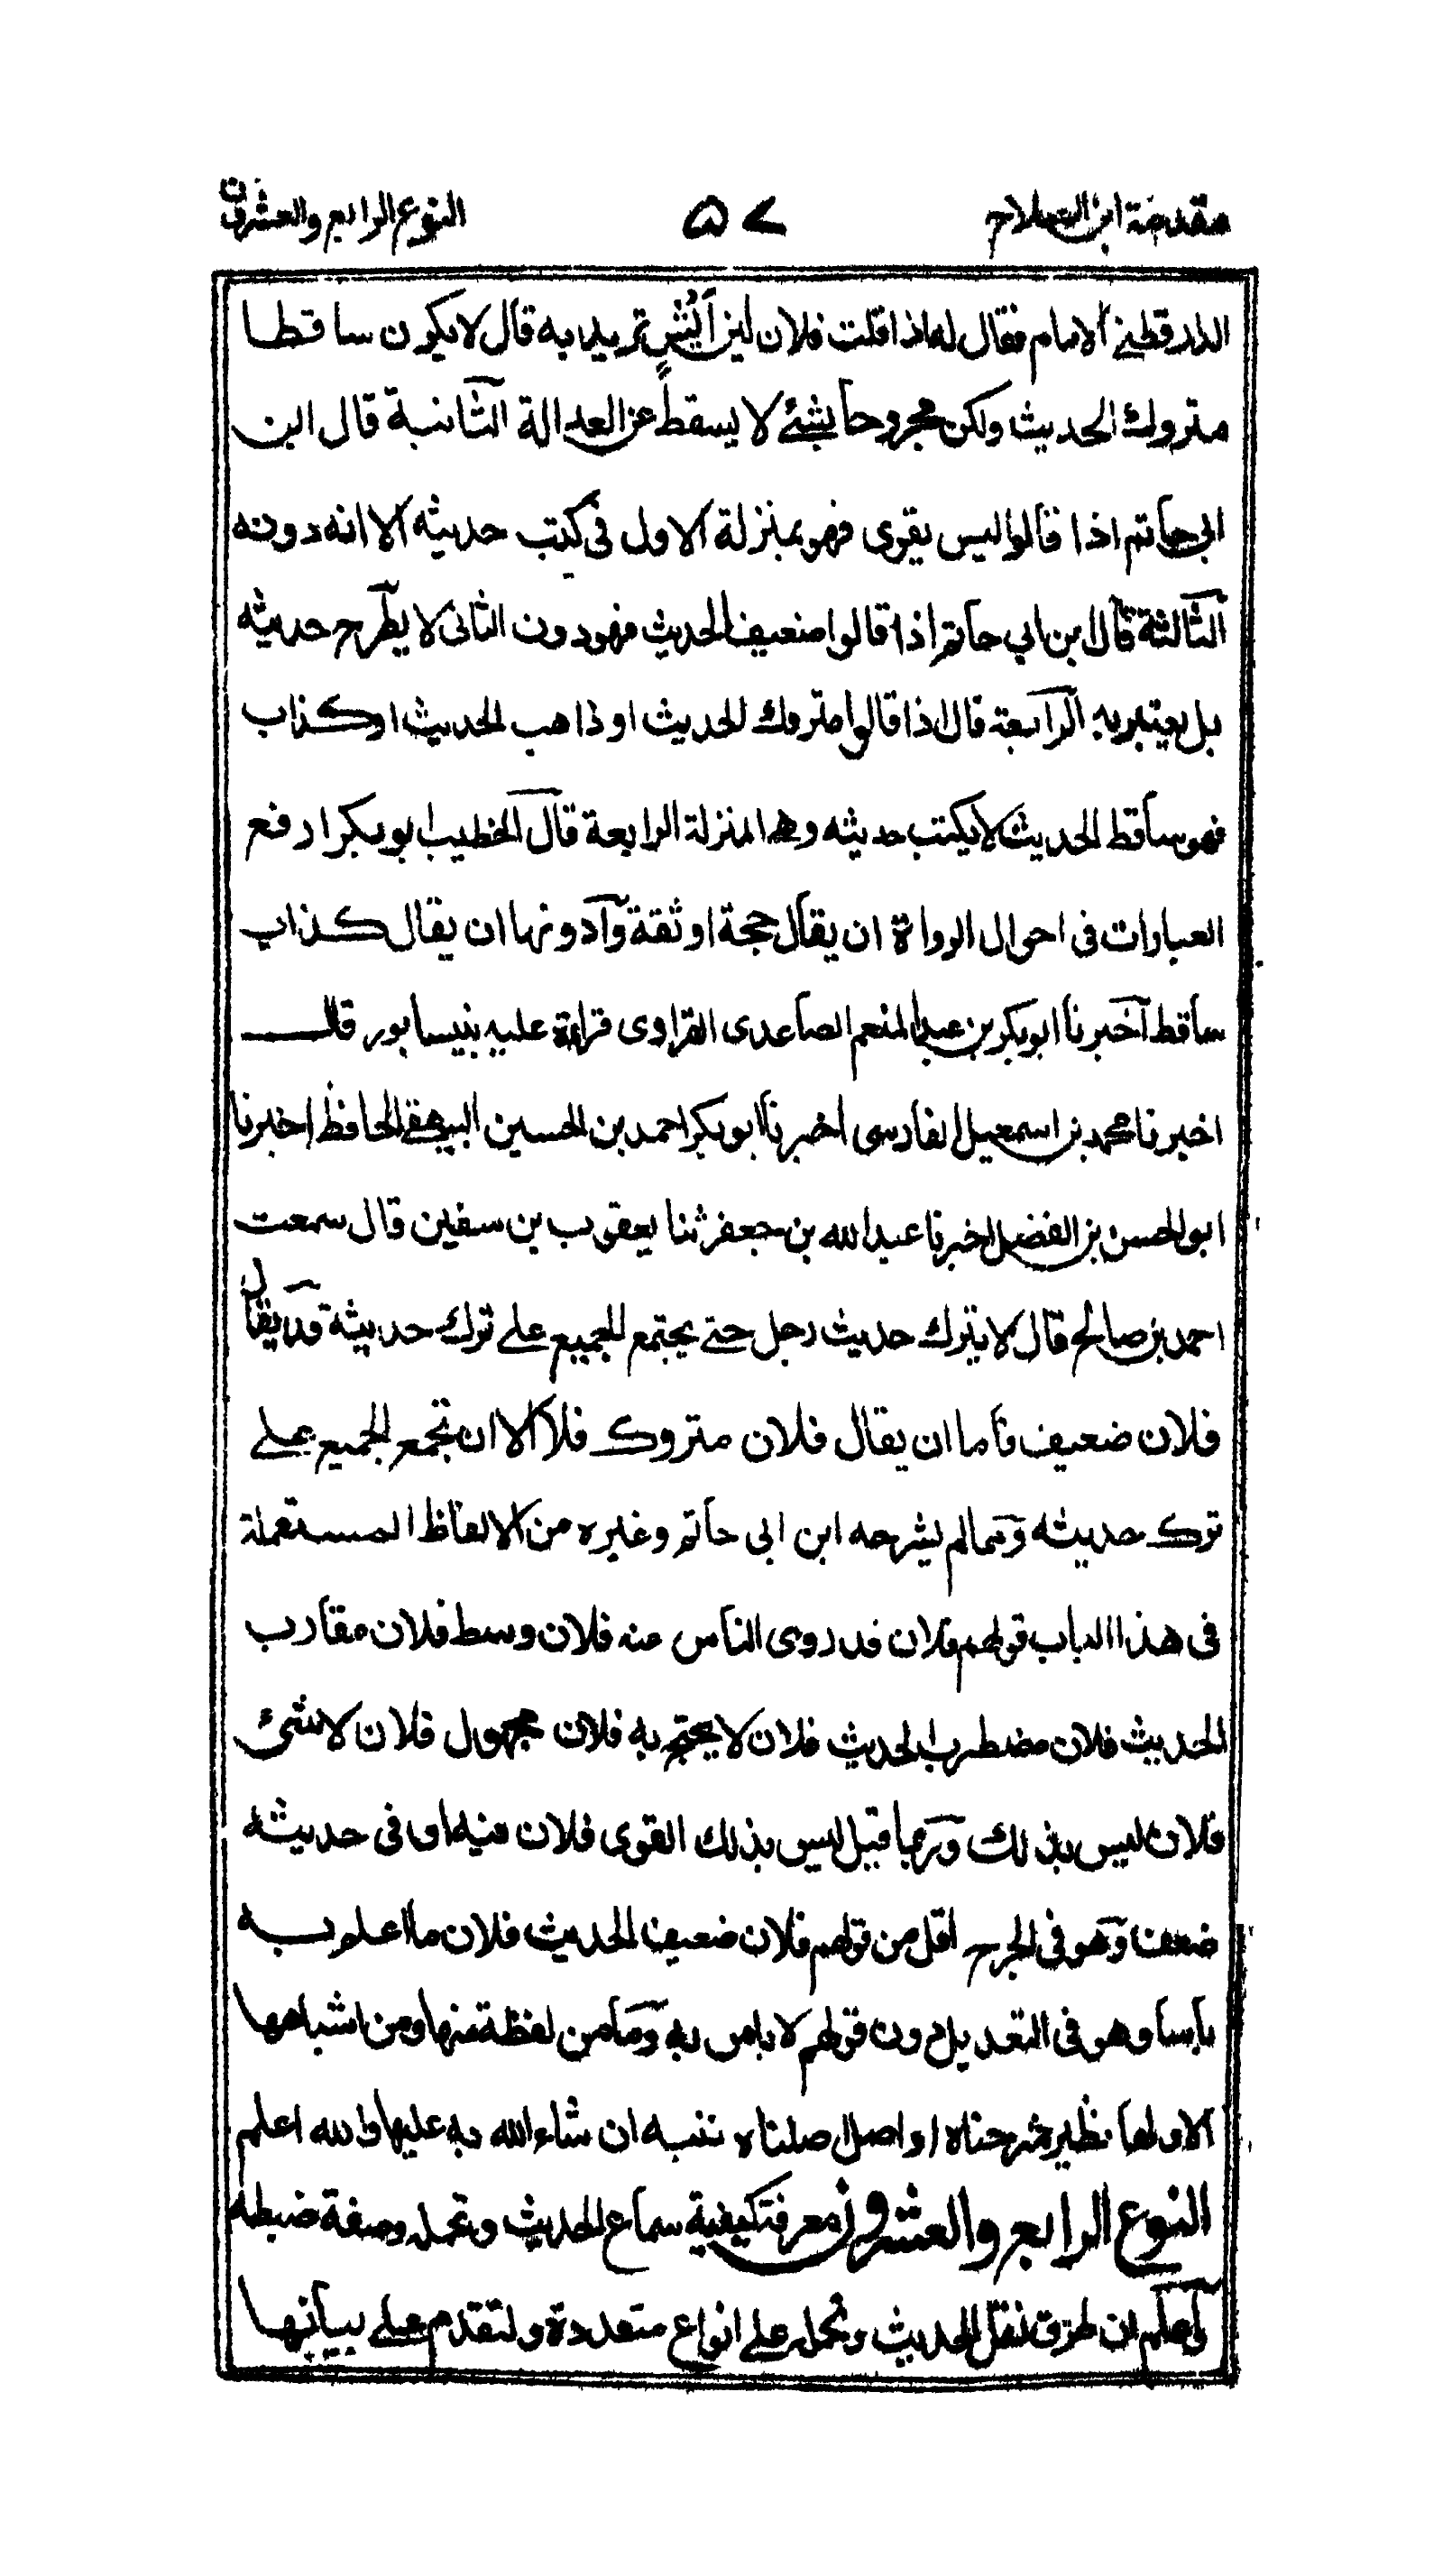 مقدمة ابن الصلاح ٥٧ النوع الرابع والعشرون
الدارقطني الامام فقال له اذا قلت فلان لين ايش تريد به قال لا يكون ساقطا
متروك الحديث ولكن مجروحا بشئ لا يسقط عن العدالة الثانية قال ابن
ابي حاتم اذا قالوا ليس بقوى فهو بمنزلة الاول في كتب حديثه الا انه دونه
الثالثة قال بن ابي حاتم اذا قالوا ضعيف الحديث فهو دون الثانى لا يطرح حديثه
بل يعتبر به الرابعة قال اذا قالوا متروك الحديث او ذاهب الحديث او كذاب
فهو ساقط الحديث لا يكتب حديثه وهى المنزلة الرابعة قال الخطيب ابو بكر ارفع
العبارات فى احوال الرواة ان يقال حجة او ثقة وآدونها ان يقال كذاب
ساقط آخبرنا ابو بكر بن عبد المنعم الصاعدى الفراوى قراءة عليه بنيسابور قال
اخبرنا محمد بن اسمعيل الفارسى اخبرنا ابو بكر احمد بن الحسين البيهقے الحافظ اخبرنا
ابو الحسن بن الفضل اخبرنا عبد الله بن جعفر ثنا يعقوب بن سفين قال سمعت
احمد بن صالح قال لا يترك حديث رجل حتے يجتمع الجميع علے ترك حديثه قد يقال
فلان ضعيف فأما ان يقال فلان متروك فلا الا ان تجمع الجميع علے
ترك حديثه ومما لم يشرحه ابن ابى حاتم وغيره من الالفاظ المستعملة
فى هذا الباب قولهم فلان قد روى الناس عنه فلان وسط فلان مقارب
الحديث فلان مضطرب الحديث فلان لا يحتج به فلان مجهول فلان لا شئ
فلان ليس بذلك وربما قيل ليس بذلك القوى فلان فيه او فى حديثه
ضعف وهو فى الجرح اقل من قولهم فلان ضعيف الحديث فلان ما اعلم به
بأسا وهو فى التعديل دون قولهم لا باس به وما من لفظة منها ومن اشباهها
الا ولها نظير شرحناه او اصل اصلناه ننبه ان شاء الله به عليها والله اعلم
النوع الرابع والعشرون معرفة كيفية سماع الحديث وتحمله وصفة ضبطه
اعلم ان طرق نقل الحديث وتحمله علے انواع متعددة ولنقدم علے بيانها